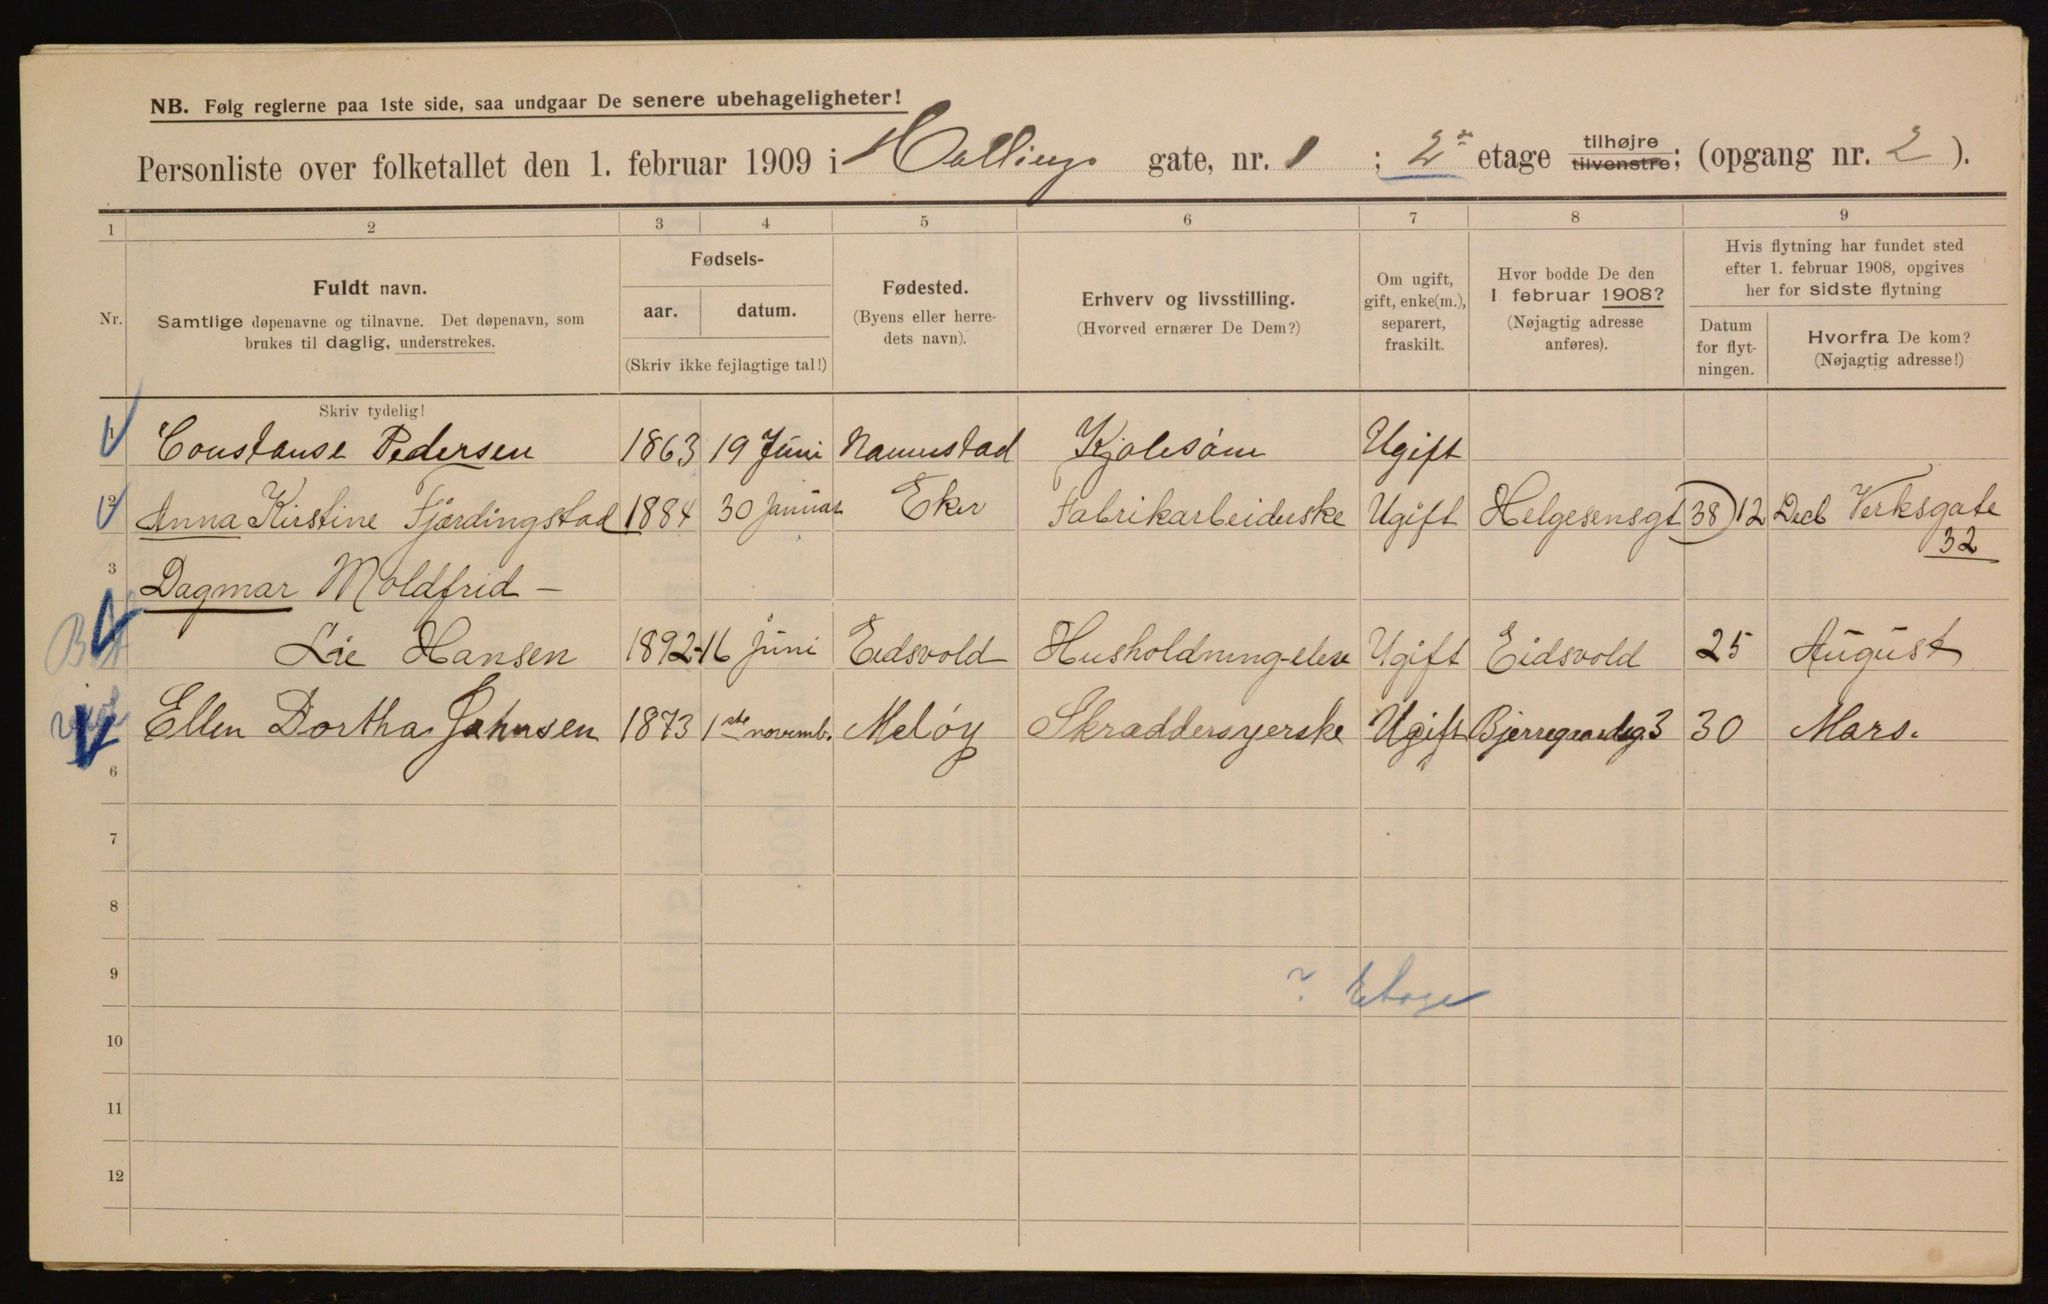 NB. Følg reglerne paa 1ste side, saa undgaar De senere ubehageligheter!
Personliste over folketallet den 1. februar 1909 i Hallings gate, nr. 1 ; 2den etage tilhøjre tilvenstre; (opgang nr. 2 ).
1 2 3 4 5 6 7 8 9
Nr.
Fuldt navn.
Samtlige døpenavne og tilnavne. Det døpenavn, som
brukes til daglig, understrekes.
Fødsels-
aar. datum.
(Skriv ikke fejlagtige tal!)
Fødested.
(Byens eller herre-
dets navn).
Erhverv og livsstilling.
(Hvorved ernærer De Dem?)
Om ugift,
gift, enke(m.),
separert,
fraskilt.
Hvor bodde De den
1 februar 1908?
(Nøjagtig adresse
anføres).
Hvis flytning har fundet sted
efter 1. februar 1908, opgives
her for sidste flytning
Datum
for flyt-
ningen.
Hvorfra De kom?
(Nøjagtig adresse!)
Skriv tydelig!
1 Constanse Pedersen 1863 19 Juni Namnstad Kjolesøm Ugift
2 Anna Kirstine Fjærdingstad 1884 30 Januar Eker Fabrikarbeiderske Ugift Helgesensgt 38 12 Decb Verksgate
32
3 Dagmar Moldfrid –
Lie Hansen 1892 16 Juni Eidsvold Husholdning-elev Ugift Eidsvold 25 August
Ellen Dortha Johnsen 1873 1ste novemb. Meløy Skræddersyerske Ugift Bjerregaardsg. 3 30 Mars.
6
7
8
9
? Etage
10
11
12